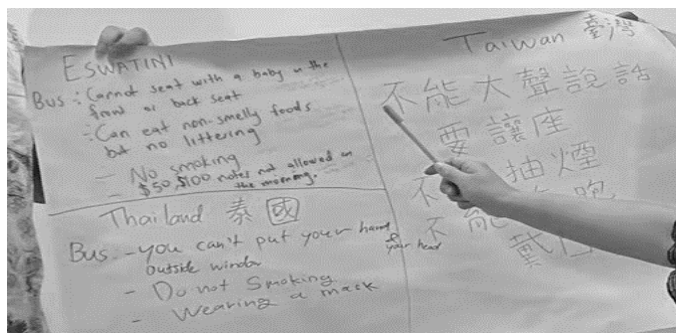 ESWATINI
Bus : Cannot seat with a baby in the
front or back seat
: Can eat non-smelly foods
but no littering
- No smoking
- $50, $100 notes not allowed in
the morning.
Thailand 泰國
Bus - you can't put your hand &
your head
outside window
- Do not Smoking
- Wearing a mack
-
Taiwan 臺灣
不能大聲說話
要讓座
不 抽煙
不能 跑
戴口